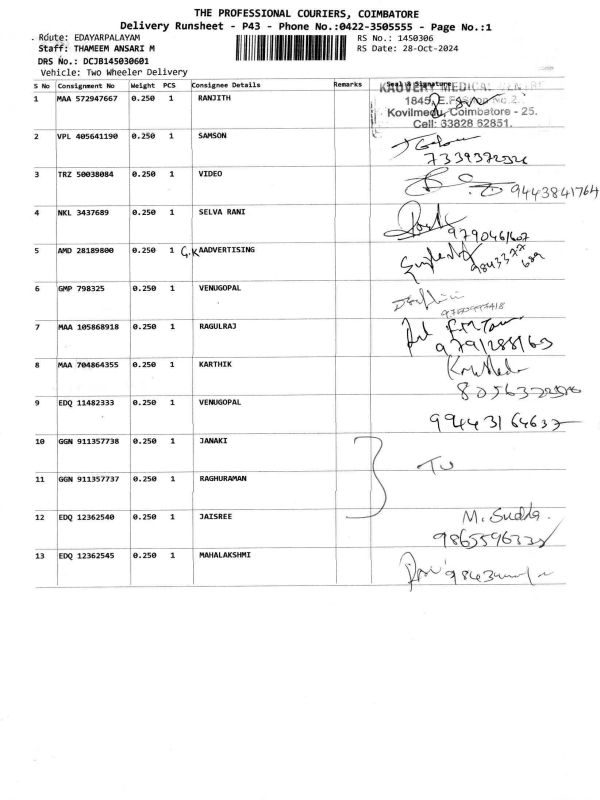 THE PROFESSIONAL COURIERS, COIMBATORE
Delivery Runsheet - P43 - Phone No.:0422-3505555 - Page No.:1
Route: EDAYARPALAYAM
RS No.: 1450306
Staff: THAMEEM ANSARI M
RS Date: 28-Oct-2024
DRS No.: DCJB145030601
Vehicle: Two Wheeler Delivery
S No Consignment No Weight PCS Consignee Details Remarks Seal & Signature
KAUVERY MEDICAL CENTRE
1 MAA 572947667 0.250 1 RANJITH
1845, No.2
Kovilmedu, Coimbatore - 25.
Cell: 33828 62851.
2 VPL 405641190 0.250 1 SAMSON
7339372526
3 TRZ 50038084 0.250 1 VIDEO
9443841764
4 NKL 3437689 0.250 1 SELVA RANI
9790461607
5 AMD 28189800 0.250 1 G.K AADVERTISING
6 GMP 798325 0.250 1 VENUGOPAL
7 MAA 105868918 0.250 1 RAGULRAJ
9791288163
8 MAA 704864355 0.250 1 KARTHIK
9 EDQ 11482333 0.250 1 VENUGOPAL
9944316463
10 GGN 911357738 0.250 1 JANAKI
11 GGN 911357737 0.250 1 RAGHURAMAN
12 EDQ 12362540 0.250 1 JAISREE
M. Sudha.
13 EDQ 12362545 0.250 1 MAHALAKSHMI